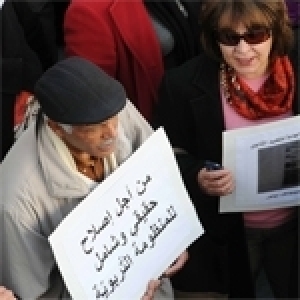 من أجل إصلاح
حقيقي وشامل
للمنظومة التربوية